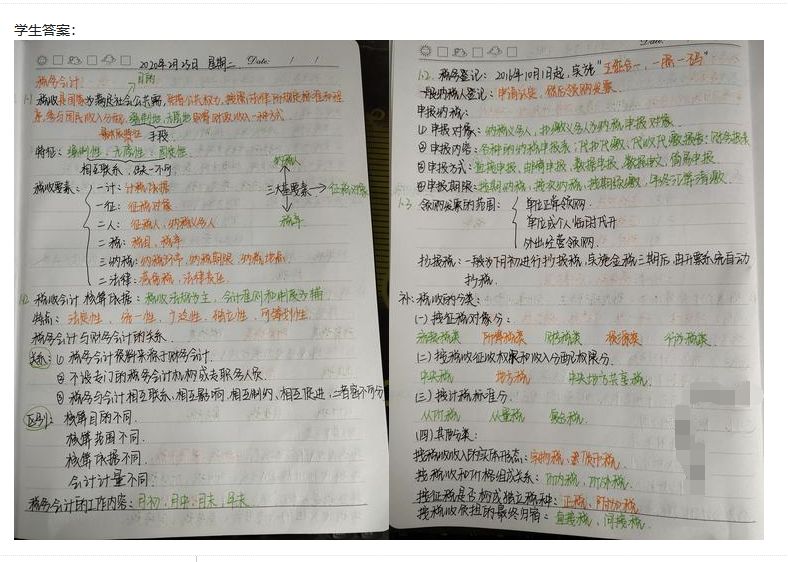 学生答案:
2020年2月25日 星期二 Date: / /
税务会计:
目的
1-1 税收是国家为满足社会公共需,凭借公共权力,按照法律所规定标准和程
序,参与国民收入分配,强制性、无偿性取得财政收入一种方式
手段
特征:强制性、无偿性、固定性
相互联系,缺一不可
税收要素:
一计:计税依据
一征:征税对象
二人:征税人,纳税义务人
二税:税目,税率
三纳税:纳税环节,纳税期限,纳税地点
二法律:减免税,法律责任
纳税人
三大基要素
征税对象
税率
1-2 税收会计 核算依据:税收法规为主,会计准则和制度为辅
特点:法定性、统一性、广泛性、独立性、可筹划性
税务会计与财务会计的关系
关系:① 税务会计根源于财务会计.
② 不设专门的税务会计机构或专职务人员
③ 税务与会计相互联系,相互影响,相互制约,相互促进,二者密不可分
区别:核算目的不同.
核算范围不同.
核算依据不同.
会计计量不同.
税务会计的工作内容:月初,月中,月末,年末
1-2. 税务登记:2016年10月1日起,实施"五证合一,一照一码"
一般纳税人登记:申请认定,然后领购发票.
申报纳税:
① 申报对象:纳税义务人,扣缴义务人为纳税申报对象.
② 申报内容:各种的纳税申报表;代扣代缴、代收代缴报告;财务报表
③ 申报方式:直接申报,邮寄申报,数据申报,数据电文,简易申报
④ 申报期限:按期纳税,按次纳税,按期预缴,年终汇算清缴.
1-3 领购发票的范围:
单位正常领购.
单位或个人临时代开
外出经营领购.
抄报税:一般为下月初进行抄报税,实施金税三期后,由开票系统自动
抄税.
补:税收的分类:
(一) 按征税对象分:
流转税类 所得税类 财产税类 资源税类 行为税类
(二) 按税收征收权限和收入分配权限分.
中央税 地方税 中央地方共享税.
(三) 按计税标准分.
从价税 从量税 复合税.
(四) 其他分类:
按税收收入的实体形态:实物税,货币税.
按税收和价格组成关系:价内税,价外税.
按征税是否构成独立税种:正税,附加税
按税收负担的最终归宿:直接税,间接税.